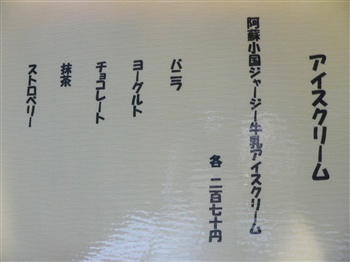 アイスクリーム
阿蘇小国ジャージー牛乳アイスクリーム
各 二百七十円
バニラ
ヨーグルト
チョコレート
抹茶
ストロベリー